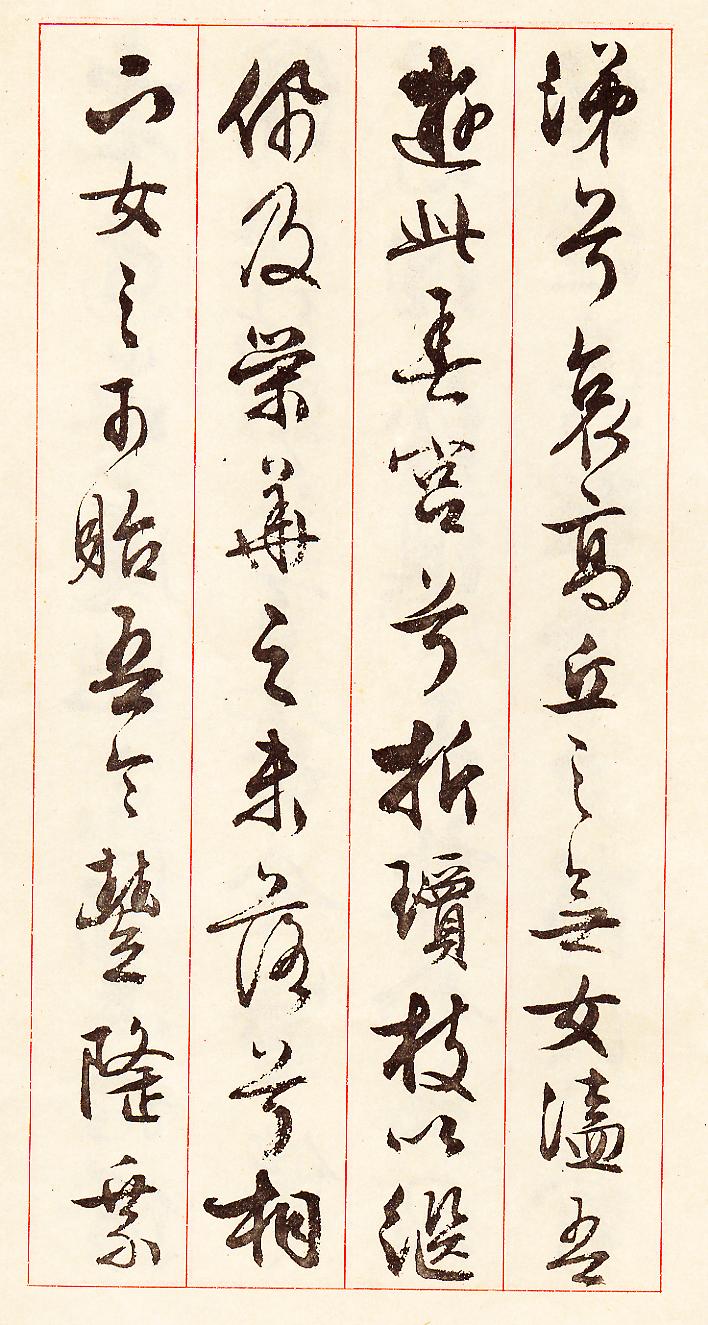 涕兮哀高丘之無女溘吾
遊此春宮兮折瓊枝以繼
佩及榮華之未落兮相
下女之可貽吾令豐隆椉